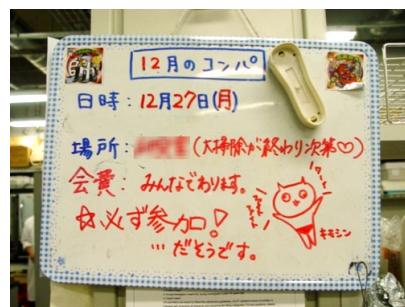 12月のコンパ
日時：12月27日(月)
場所：(大掃除が終わり次第♡)
会費：みんなでわります。
☆必ず参加！
…だそうです。
キモシン